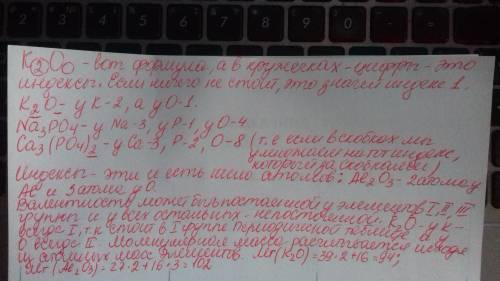 K②O○ - вот формула, а в кружочках - цифры - это
индексы. Если ничего не стоит, это значит индекс 1.
K₂O - у K-2, а у O-1.
Na₃PO4 - у Na-3, у P-1, у O-4
Ca₃(PO4)₂ - у Ca-3, P-2, O-8 (т.е если в скобках мы
умножаем на тот индекс,
который за скобками)
Индексы - эти и есть число атомов: Al₂O₃ - 2 атома у
Al и 3 атома у O.
Валентность может быть постоянной у элементов I, II, III
группы и у всех остальных - непостоянной. K₂O - у K -
всегда I, т.к стоит в I группе периодической таблицы, а у
O всегда II. Молекулярная масса рассчитывается исходя
из атомных масс элементов. Mr(K₂O) = 39·2+16=94;
Mr(Al₂O₃)=27·2+16·3=102